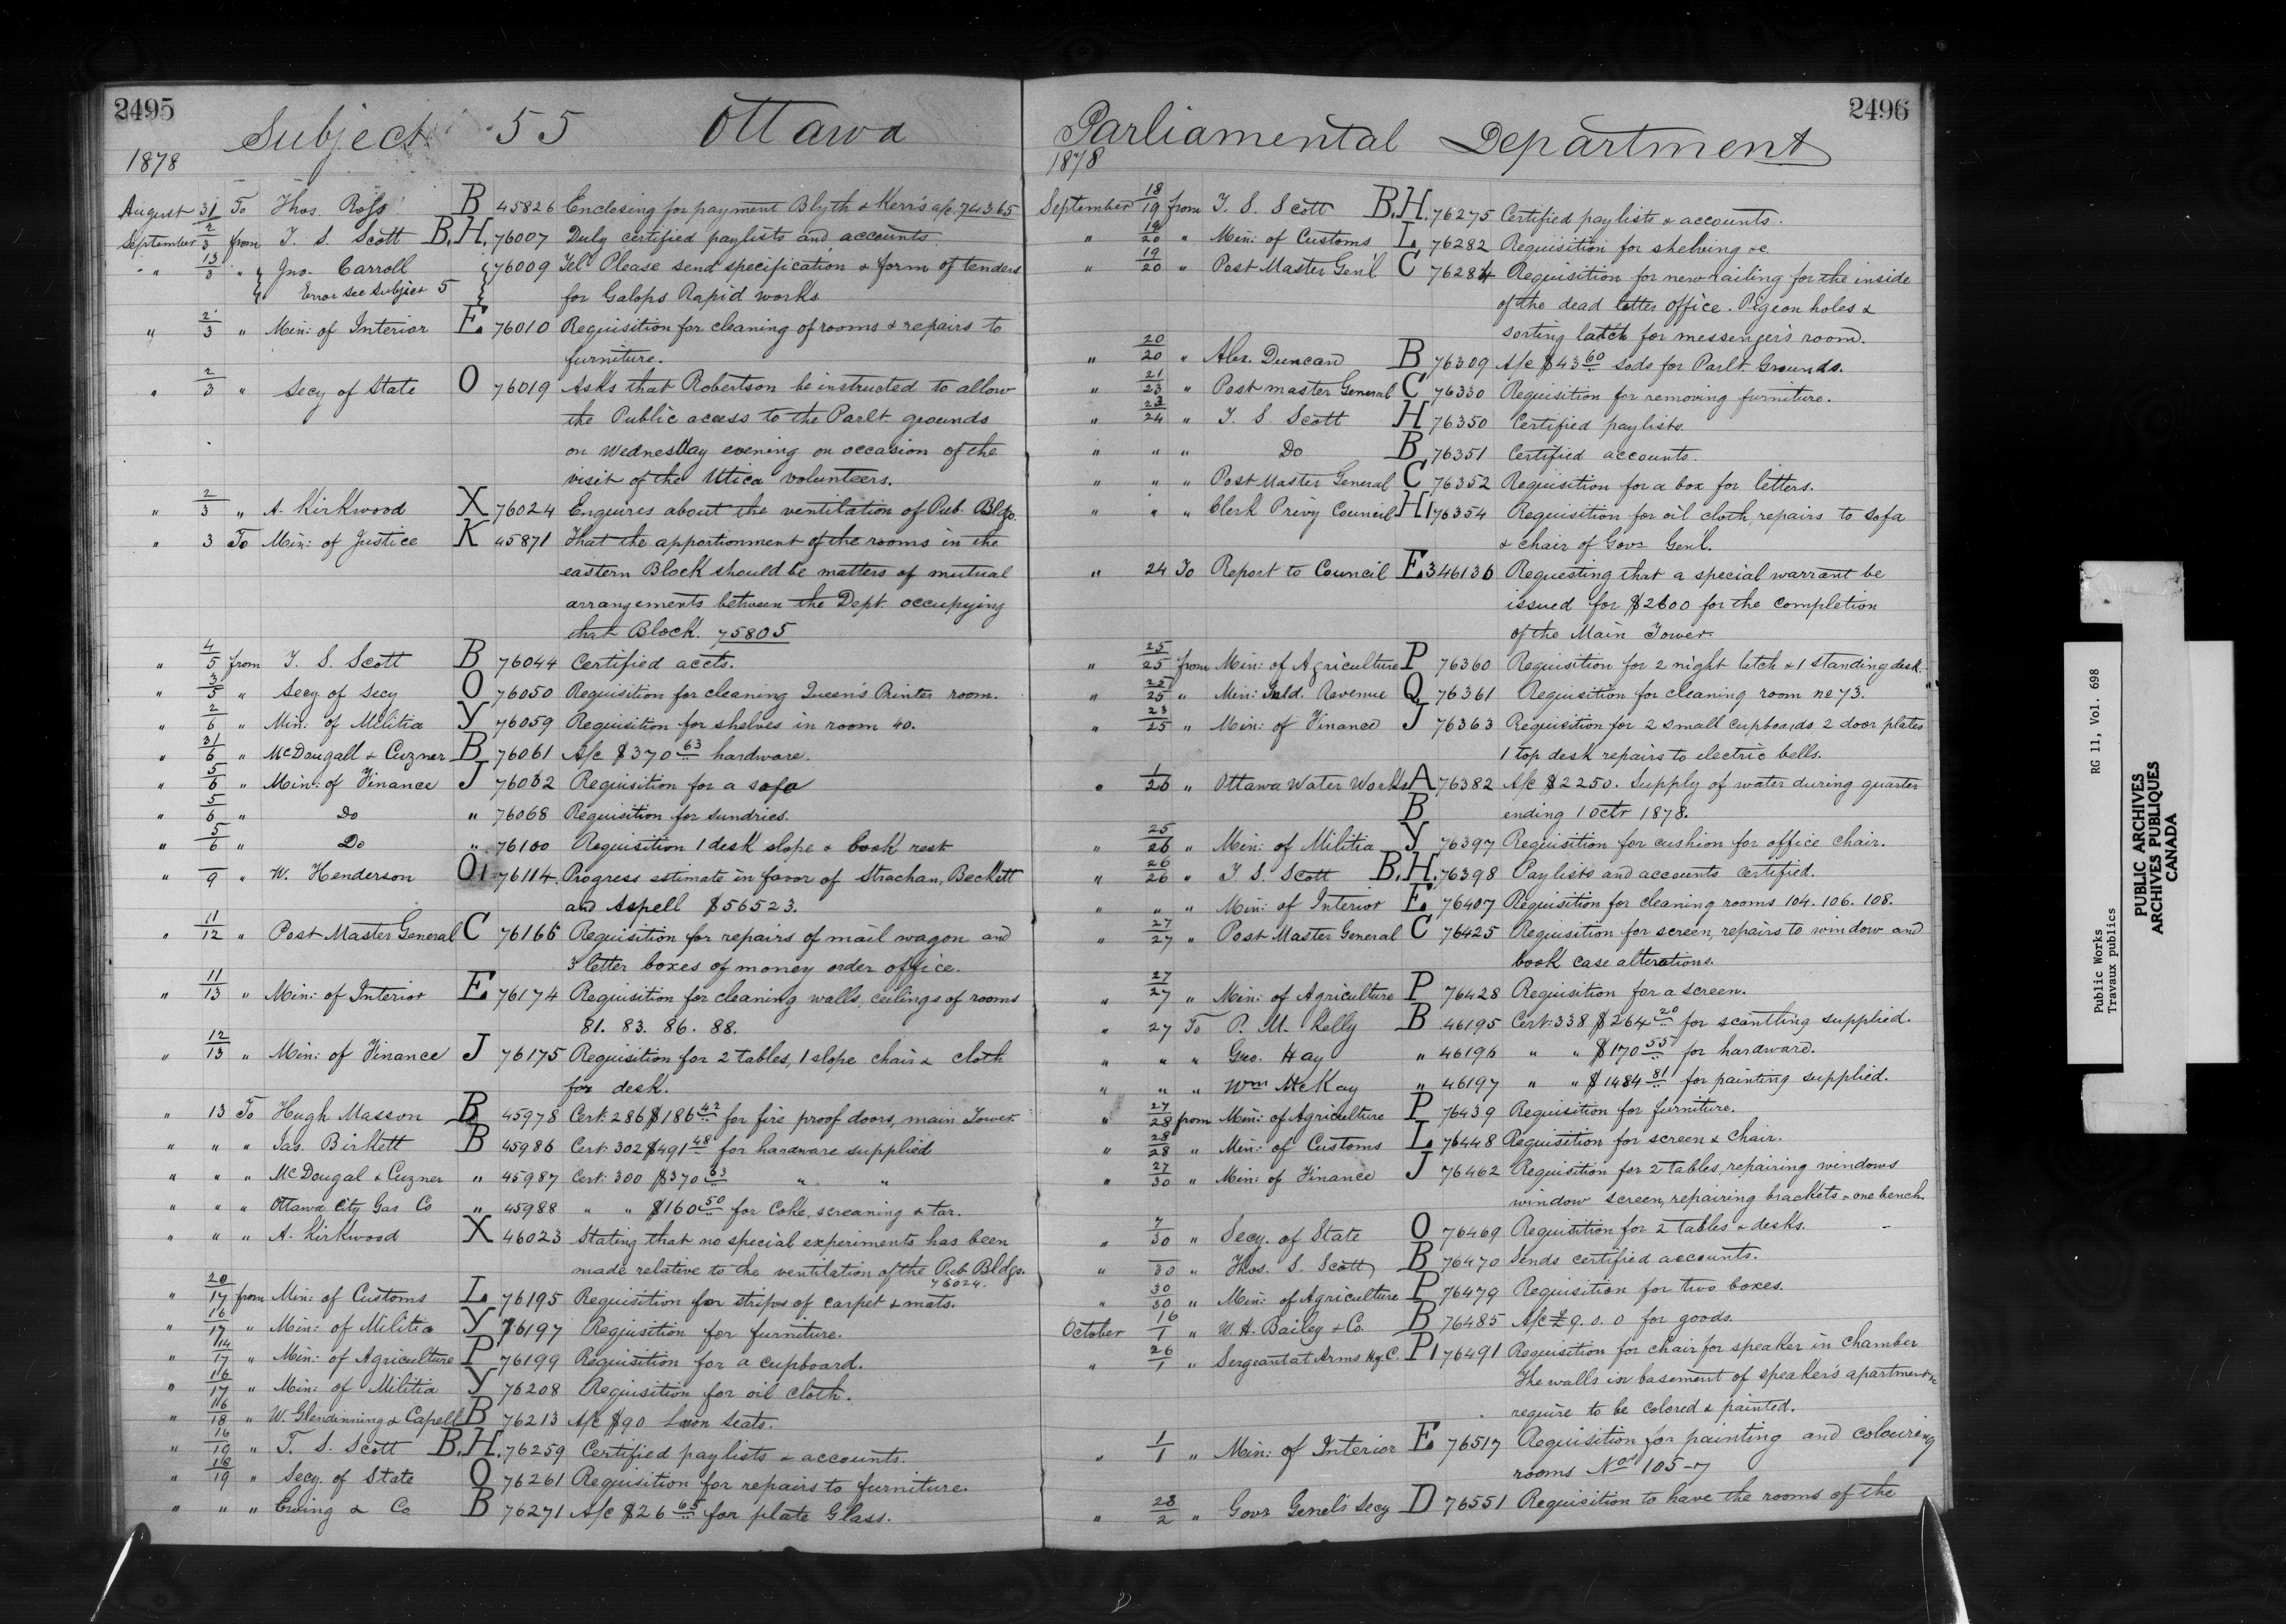 2495
Subject 55 Ottawa
1878
August 31 To Thos. Ross B 45826 Enclosing for payment Blyth & Kerr's a/c 74365
September 2/3 from T. S. Scott B.H. 76007 Duly certified paylists and accounts
" 13/3 " Jno. Carroll 76009 Tel. Please send specification & form of tenders
Error see Subject 5 for Galops Rapid works
" 2/3 " Min: of Interior E 76010 Requisition for cleaning of rooms & repairs to
furniture.
" 2/3 " Secy of State O 76019 Asks that Robertson be instructed to allow
the Public access to the Parlt. grounds
on Wednesday evening on occasion of the
visit of the Utica volunteers.
" 2/3 " A. Kirkwood X 76024 Enquires about the ventilation of Pub. Bldgs.
" 3 To Min: of Justice K 45871 That the apportionment of the rooms in the
eastern Block should be matters of mutual
arrangements between the Dept. occupying
that Block. 75805
" 4/5 from T. S. Scott B 76044 Certified accts.
" 3/5 " Secy of Secy O 76050 Requisition for cleaning Queen's Printer room.
" 2/6 " Min: of Militia Y 76059 Requisition for shelves in room 40.
" 31/6 " McDougall & Cuzner B 76061 A/c $370 63 hardware.
" 5/6 " Min: of Finance J 76062 Requisition for a sofa
" 5/6 " Do " 76068 Requisition for sundries.
" 5/6 " Do " 76100 Requisition 1 desk slope & book rest
" 9 " W. Henderson O1 76114 Progress estimate in favor of Strachan, Beckett
and Aspell $56523.
" 11/12 " Post Master General C 76166 Requisition for repairs of mail wagon and
3 letter boxes of money order office.
" 11/13 " Min: of Interior E 76174 Requisition for cleaning walls, ceilings of rooms
81. 83. 86. 88.
" 12/13 " Min: of Finance J 76175 Requisition for 2 tables, 1 slope chair & cloth
for desk.
" 13 To Hugh Masson B 45978 Cert: 286 $186 42 for fire proof doors, main Tower.
" " " Jas. Birkett B 45986 Cert: 302 $491 48 for hardware supplied
" " " McDougal & Cuzner " 45987 Cert: 300 $370 63 " "
" " " Ottawa City Gas Co " 45988 " " $160 50 for Coke, screaning & tar.
" " " A. Kirkwood X 46023 Stating that no special experiments has been
made relative to the ventilation of the Pub. Bldgs.
76024.
" 20/17 from Min: of Customs L 76195 Requisition for strips of carpet & mats.
" 16/17 " Min: of Militia Y 76197 Requisition for furniture.
" 14/17 " Min: of Agriculture P 76199 Requisition for a cupboard.
" 16/17 " Min: of Militia Y 76208 Requisition for oil cloth.
" 16/18 " W. Glendinning & Capell B 76213 A/c $90 Lawn Seats.
" 16/19 " T. S. Scott B.H. 76259 Certified paylists & accounts.
" 18/19 " Secy. of State O 76261 Requisition for repairs to furniture.
" " " Ewing & Co B 76271 A/c $26 65 for plate Glass.
2496
Parliamental Department
1878
September 18/19 from T. S. Scott B.H. 76275 Certified paylists & accounts.
" 19/20 " Min: of Customs L 76282 Requisition for shelving &c.
" 19/20 " Post Master Gen'l C 76284 Requisition for new railing for the inside
of the dead letter office. Pigeon holes &
sorting latch for messenger's room.
" 20/20 " Alex. Duncan B 76309 A/c $43 60 Sods for Parlt. Grounds.
" 21/23 " Post master General C 76330 Requisition for removing furniture.
" 23/24 " T. S. Scott H 76350 Certified paylists.
" " " Do B 76351 Certified accounts.
" " " Post Master General C 76352 Requisition for a box for letters.
" " " Clerk Privy Council H1 76354 Requisition for oil cloth, repairs to sofa
& chair of Govr Genl.
" 24 To Report to Council E3 46136 Requesting that a special warrant be
issued for $2600 for the completion
of the Main Tower.
" 25/25 from Min: of Agriculture P 76360 Requisition for 2 night latch & 1 standing desk.
" 25/25 " Min: Inld. Revenue Q 76361 Requisition for cleaning room no 73.
" 23/25 " Min: of Finance J 76363 Requisition for 2 small cupboards 2 door plates
1 top desk repairs to electric bells.
" 1/26 " Ottawa Water Works A 76382 A/c $2250. Supply of water during quarter
B ending 1 Octr 1878.
" 25/26 " Min: of Militia Y 76397 Requisition for cushion for office chair.
" 26/26 " T. S. Scott B.H. 76398 Paylists and accounts certified.
" " " Min: of Interior E 76407 Requisition for cleaning rooms 104. 106. 108.
" 27/27 " Post Master General C 76425 Requisition for screen, repairs to window and
book case alterations.
" 27/27 " Min: of Agriculture P 76428 Requisition for a screen.
" 27 To P. M. Kelly B 46195 Cert: 338 $264 20 for scantling supplied.
" " " Geo. Hay " 46196 " " $170 55 for hardware.
" " " Wm McKay " 46197 " " $1484 81 for painting supplied.
" 27/28 from Min: of Agriculture P 76439 Requisition for furniture.
" 28/28 " Min: of Customs L 76448 Requisition for screen & chair.
" 27/30 " Min: of Finance J 76462 Requisition for 2 tables, repairing windows
window screen, repairing brackets & one bench.
" 7/30 " Secy. of State O 76469 Requisition for 2 tables & desks.
" 30 " Thos. S. Scott B 76470 Sends certified accounts.
" 30/30 " Min: of Agriculture P 76479 Requisition for two boxes.
October 16/1 " W. H. Bailey & Co. B 76485 A/c £9. 8. 0 for goods.
" 26/1 " Sergeant at Arms H of C. P1 76491 Requisition for chair for speaker in chamber
The walls in basement of speaker's apartments
require to be colored & painted.
" 1/1 " Min: of Interior E 76517 Requisition for painting and colouring
rooms Nos 105-7
" 28/2 " Govr Genel's Secy D 76551 Requisition to have the rooms of the
Public Works RG 11, Vol. 698
Travaux publics
PUBLIC ARCHIVES
ARCHIVES PUBLIQUES
CANADA